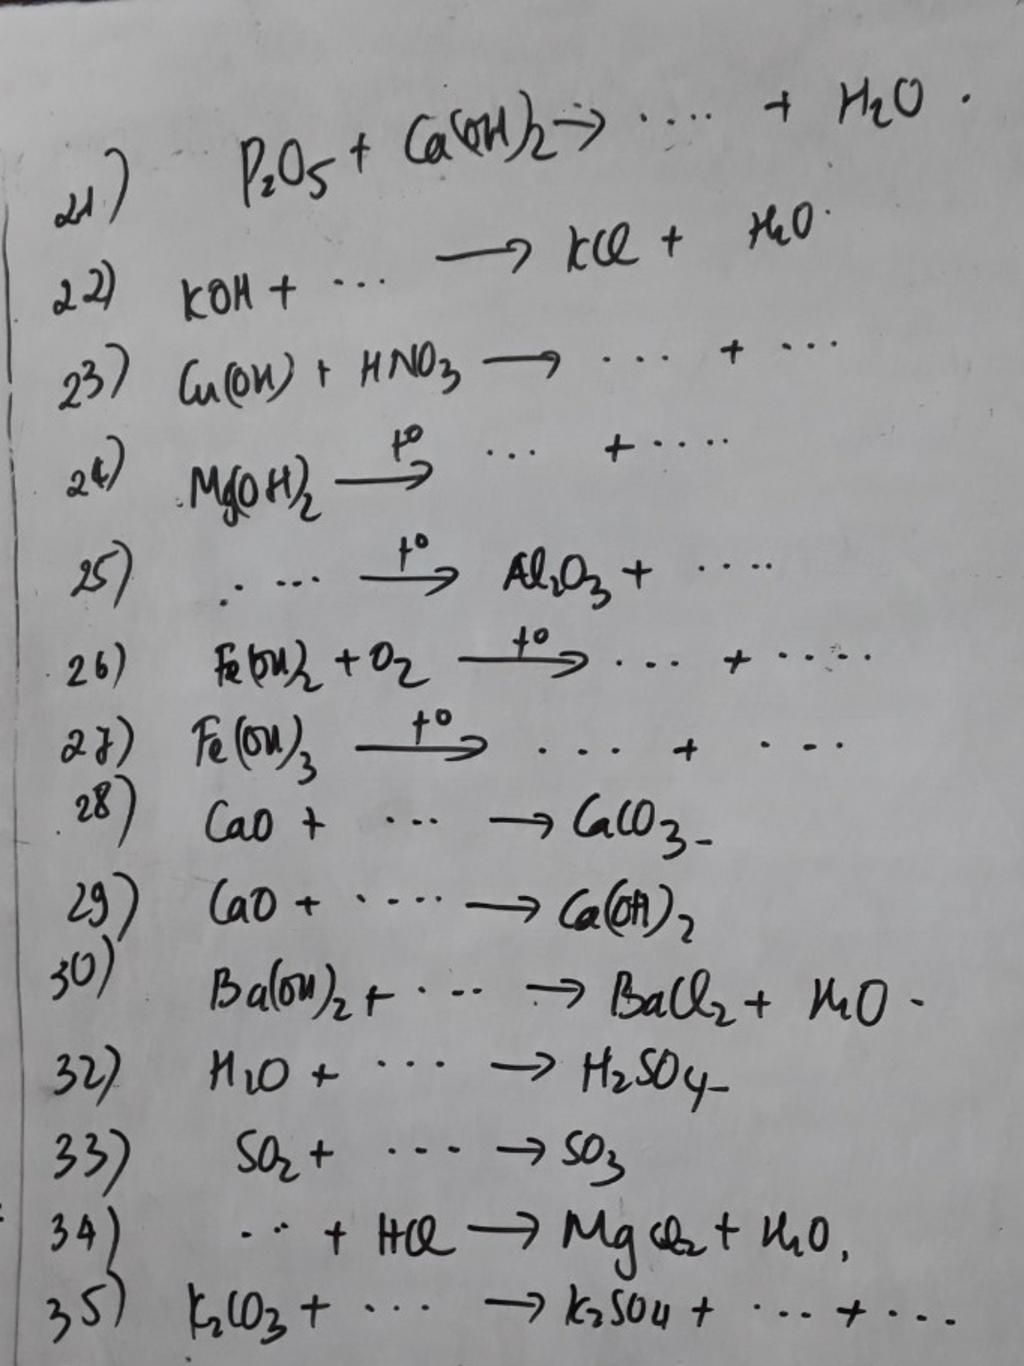 21) P₂O₅ + Ca(OH)₂ → .... + H₂O .
22) KOH + ... → KCl + H₂O.
23) Cu(OH) + HNO₃ → ... + ...
24) Mg(OH)₂ –t⁰→ ... + ....
25) .... –t⁰→ Al₂O₃ + ....
26) Fe(OH)₂ + O₂ –t⁰→ ... + ....
27) Fe(OH)₃ –t⁰→ ... + ...
28) CaO + ... → CaCO₃ -
29) CaO + .... → Ca(OH)₂
30) Ba(OH)₂ + ... → BaCl₂ + H₂O -
32) H₂O + ... → H₂SO₄ -
33) SO₂ + ... → SO₃
34) ... + HCl → MgCl₂ + H₂O.
35) K₂CO₃ + ... → K₂SO₄ + ... + ...